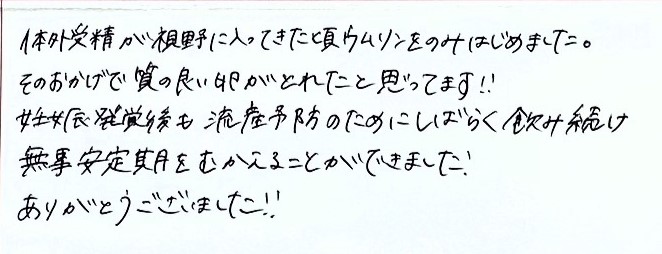 体外受精が視野に入ってきた頃ウムリンをのみはじめました。
そのおかげで質の良い卵がとれたと思ってます!!
妊娠発覚後も流産予防のためにしばらく飲み続け
無事安定期をむかえることができました!
ありがとうございました!!